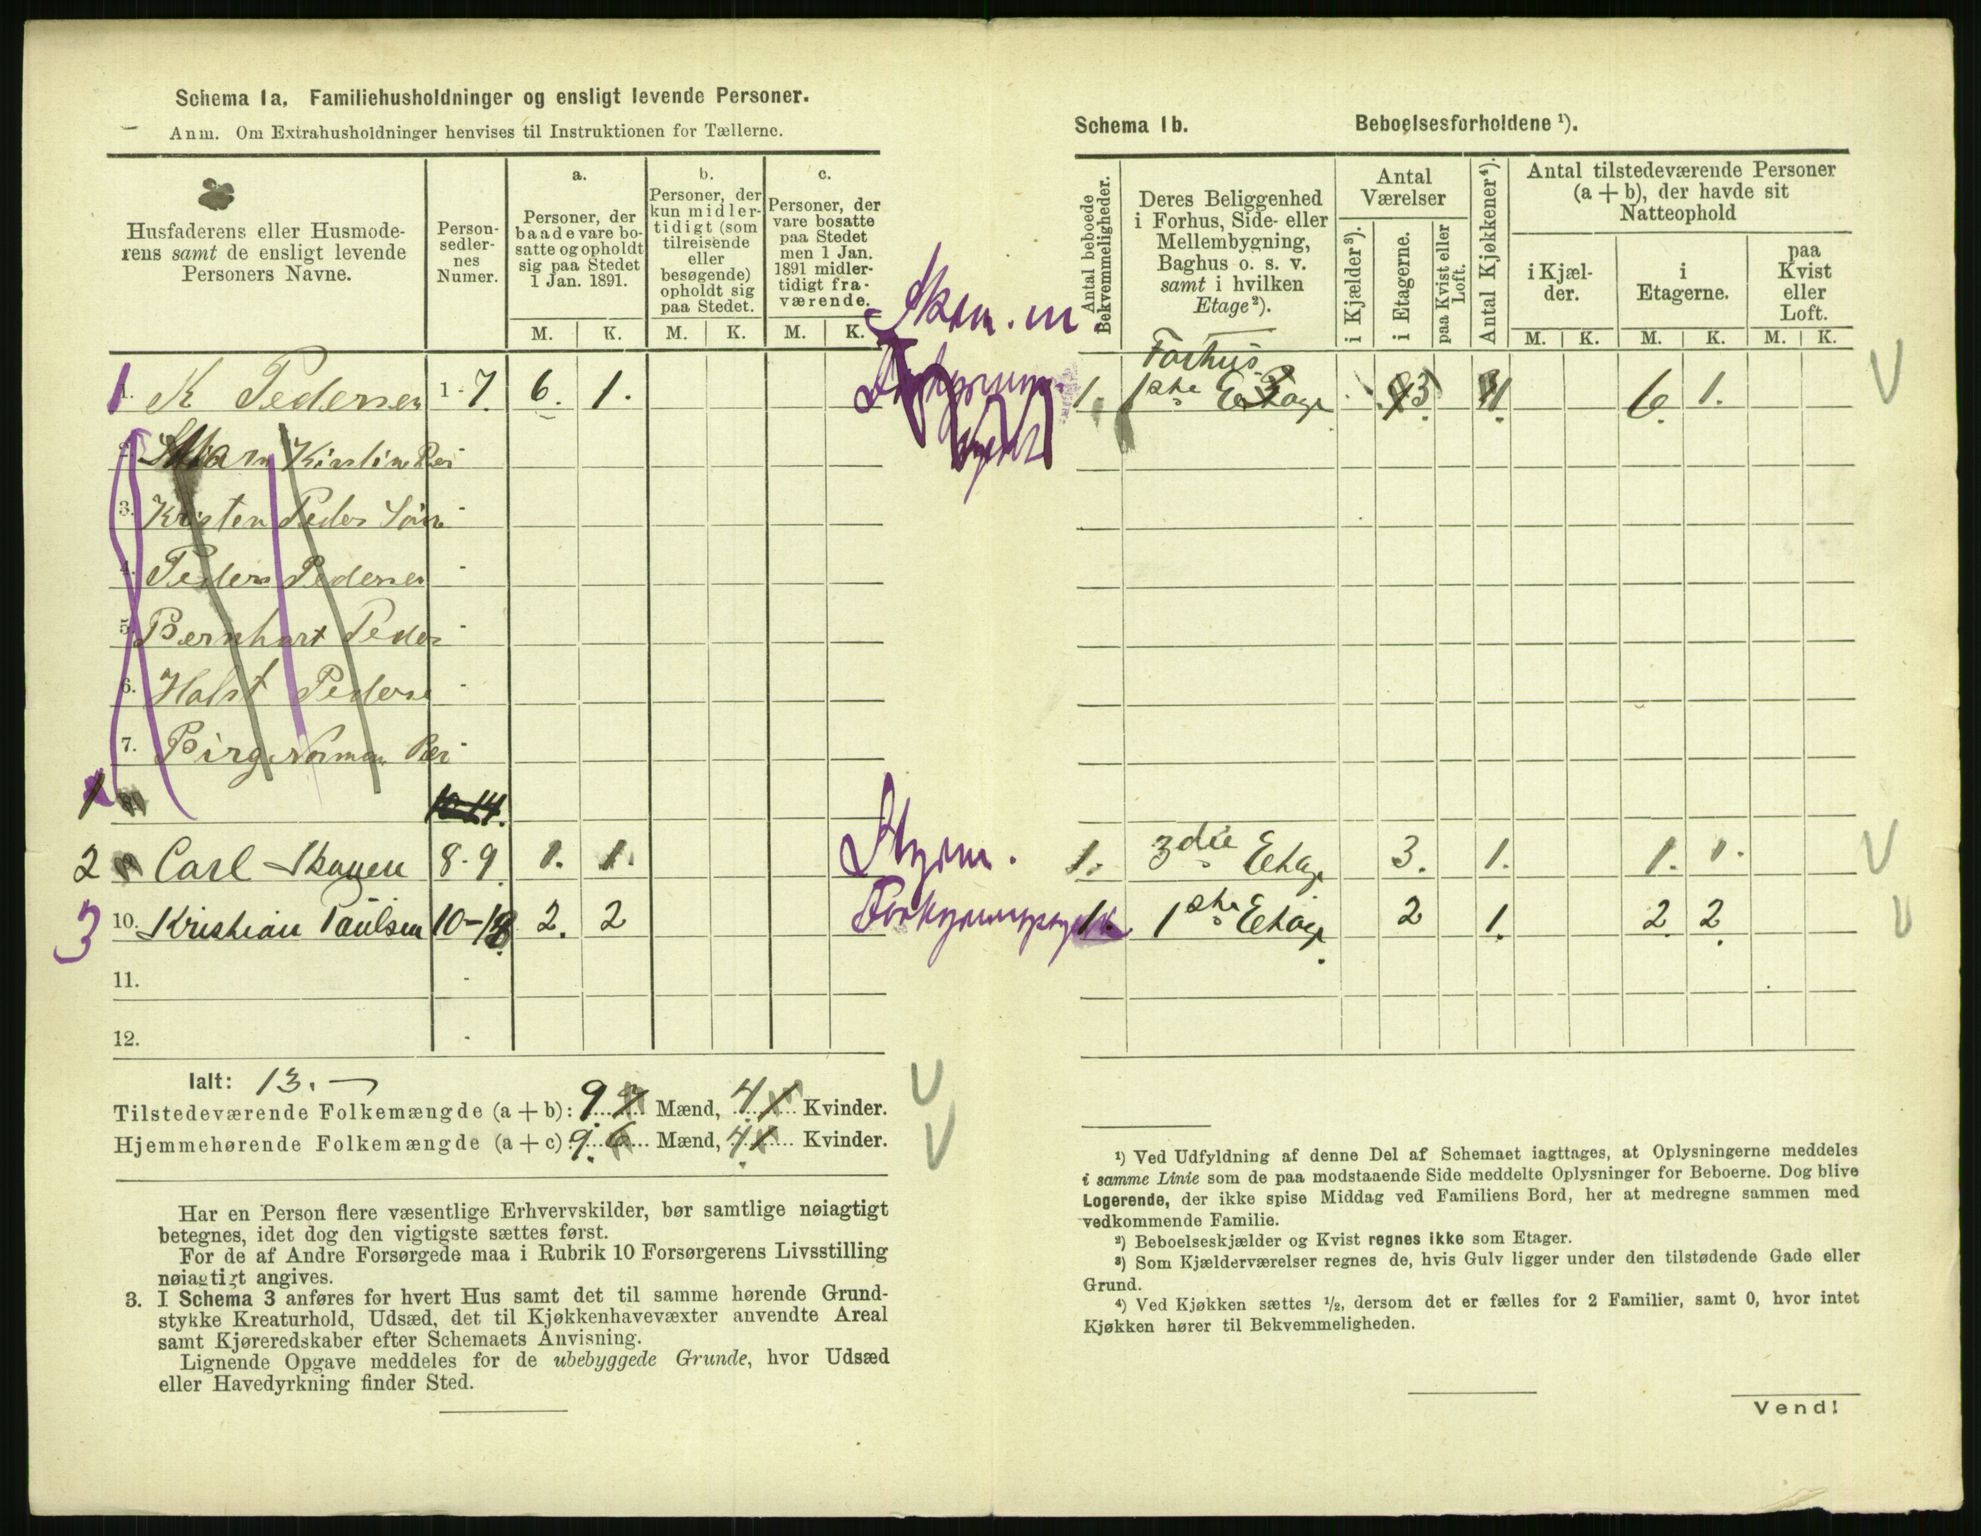 Schema 1a. Familiehusholdninger og ensligt levende Personer.
Anm. Om Extrahusholdninger henvises til Instruktionen for Tællerne.
Husfaderens eller Husmode-
rens samt de ensligt levende
Personers Navne.
Person-
sedler-
nes
Numer.
a.
Personer, der
baade vare bo-
satte og opholdt
sig paa Stedet
1 Jan. 1891.
b.
Personer, der
kun midler-
tidigt (som
tilreisende
eller
besøgende)
opholdt sig
paa Stedet.
c.
Personer, der
vare bosatte
paa Stedet
men 1 Jan.
1891 midler-
tidigt fra-
værende.
M. K. M. K. M. K.
1. K Pedersen 1-7. 6. 1.
2. Kirstin
3. Kristen Peder
4. Peder Pedersen
5. Bernhart Peder
6. Holst Pederse
7. Birg Norman
1 10-14.
2 Carl Skauen 8-9. 1. 1.
3 10. Kristian Paulsen 10-13. 2. 2
11.
12.
Ialt: 13.
Tilstedeværende Folkemængde (a + b): 9 7 Mænd, 4 1 Kvinder.
Hjemmehørende Folkemængde (a + c) 9. 6 Mænd, 4 1 Kvinder.
Har en Person flere væsentlige Erhvervskilder, bør samtlige nøiagtigt
betegnes, idet dog den vigtigste sættes først.
For de af Andre Forsørgede maa i Rubrik 10 Forsørgerens Livsstilling
nøiagtigt angives.
3. I Schema 3 anføres for hvert Hus samt det til samme hørende Grund-
stykke Kreaturhold, Udsæd, det til Kjøkkenhavevæxter anvendte Areal
samt Kjøreredskaber efter Schemaets Anvisning.
Lignende Opgave meddeles for de ubebyggede Grunde, hvor Udsæd
eller Havedyrkning finder Sted.
Schema 1b. Beboelsesforholdene ¹).
Antal beboede
Bekvemmeligheder.
Deres Beliggenhed
i Forhus, Side- eller
Mellembygning,
Baghus o. s. v.
samt i hvilken
Etage²).
Antal
Værelser
i Kjælder³).
i Etagerne.
paa Kvist eller
Loft.
Antal Kjøkkener⁴).
Antal tilstedeværende Personer
(a + b), der havde sit
Natteophold
i Kjæl-
der.
i
Etagerne.
paa
Kvist
eller
Loft.
M. K. M. K. M. K.
Forhus
1. 1ste Etage 3 1 6. 1.
1. 3die Etage 3. 1. 1. 1.
1. 1ste Etage 2 1. 2. 2.
¹) Ved Udfyldning af denne Del af Schemaet iagttages, at Oplysningerne meddeles
i samme Linie som de paa modstaaende Side meddelte Oplysninger for Beboerne. Dog blive
Logerende, der ikke spise Middag ved Familiens Bord, her at medregne sammen med
vedkommende Familie.
²) Beboelseskjælder og Kvist regnes ikke som Etager.
³) Som Kjælderværelser regnes de, hvis Gulv ligger under den tilstødende Gade eller
Grund.
⁴) Ved Kjøkken sættes ½, dersom det er fælles for 2 Familier, samt 0, hvor intet
Kjøkken hører til Bekvemmeligheden.
Vend!